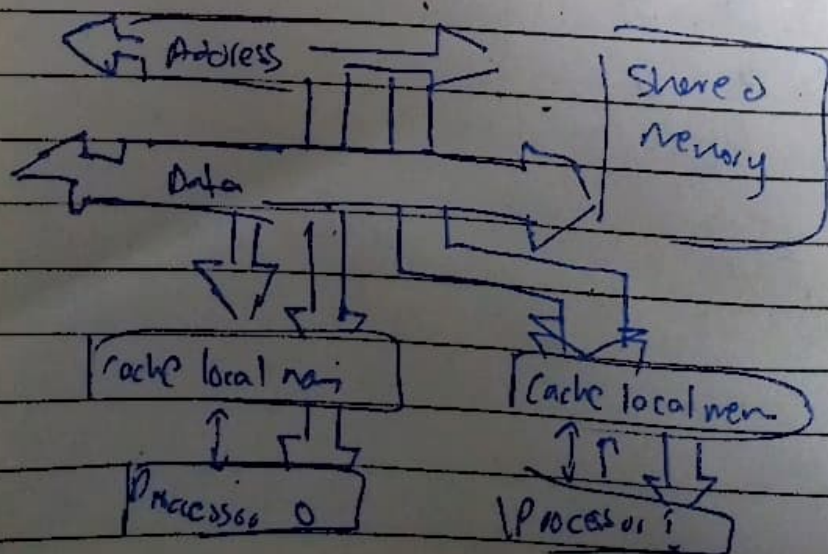 Address
Shared
Memory
Data
Cache local mem
Cache local mem
Processor 0
Processor i